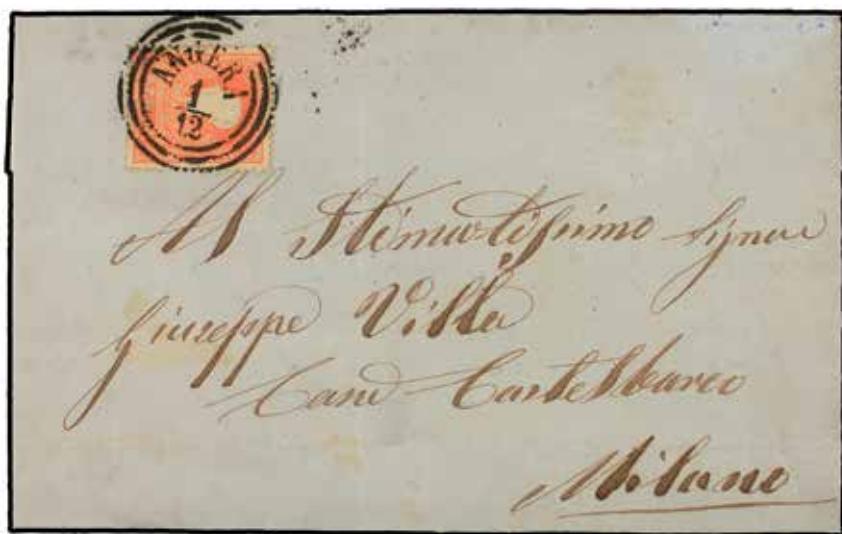 ANGERA
1
12
Al Stimatissimo Signore
Giuseppe Villa
Casa Castelbarco
Milano